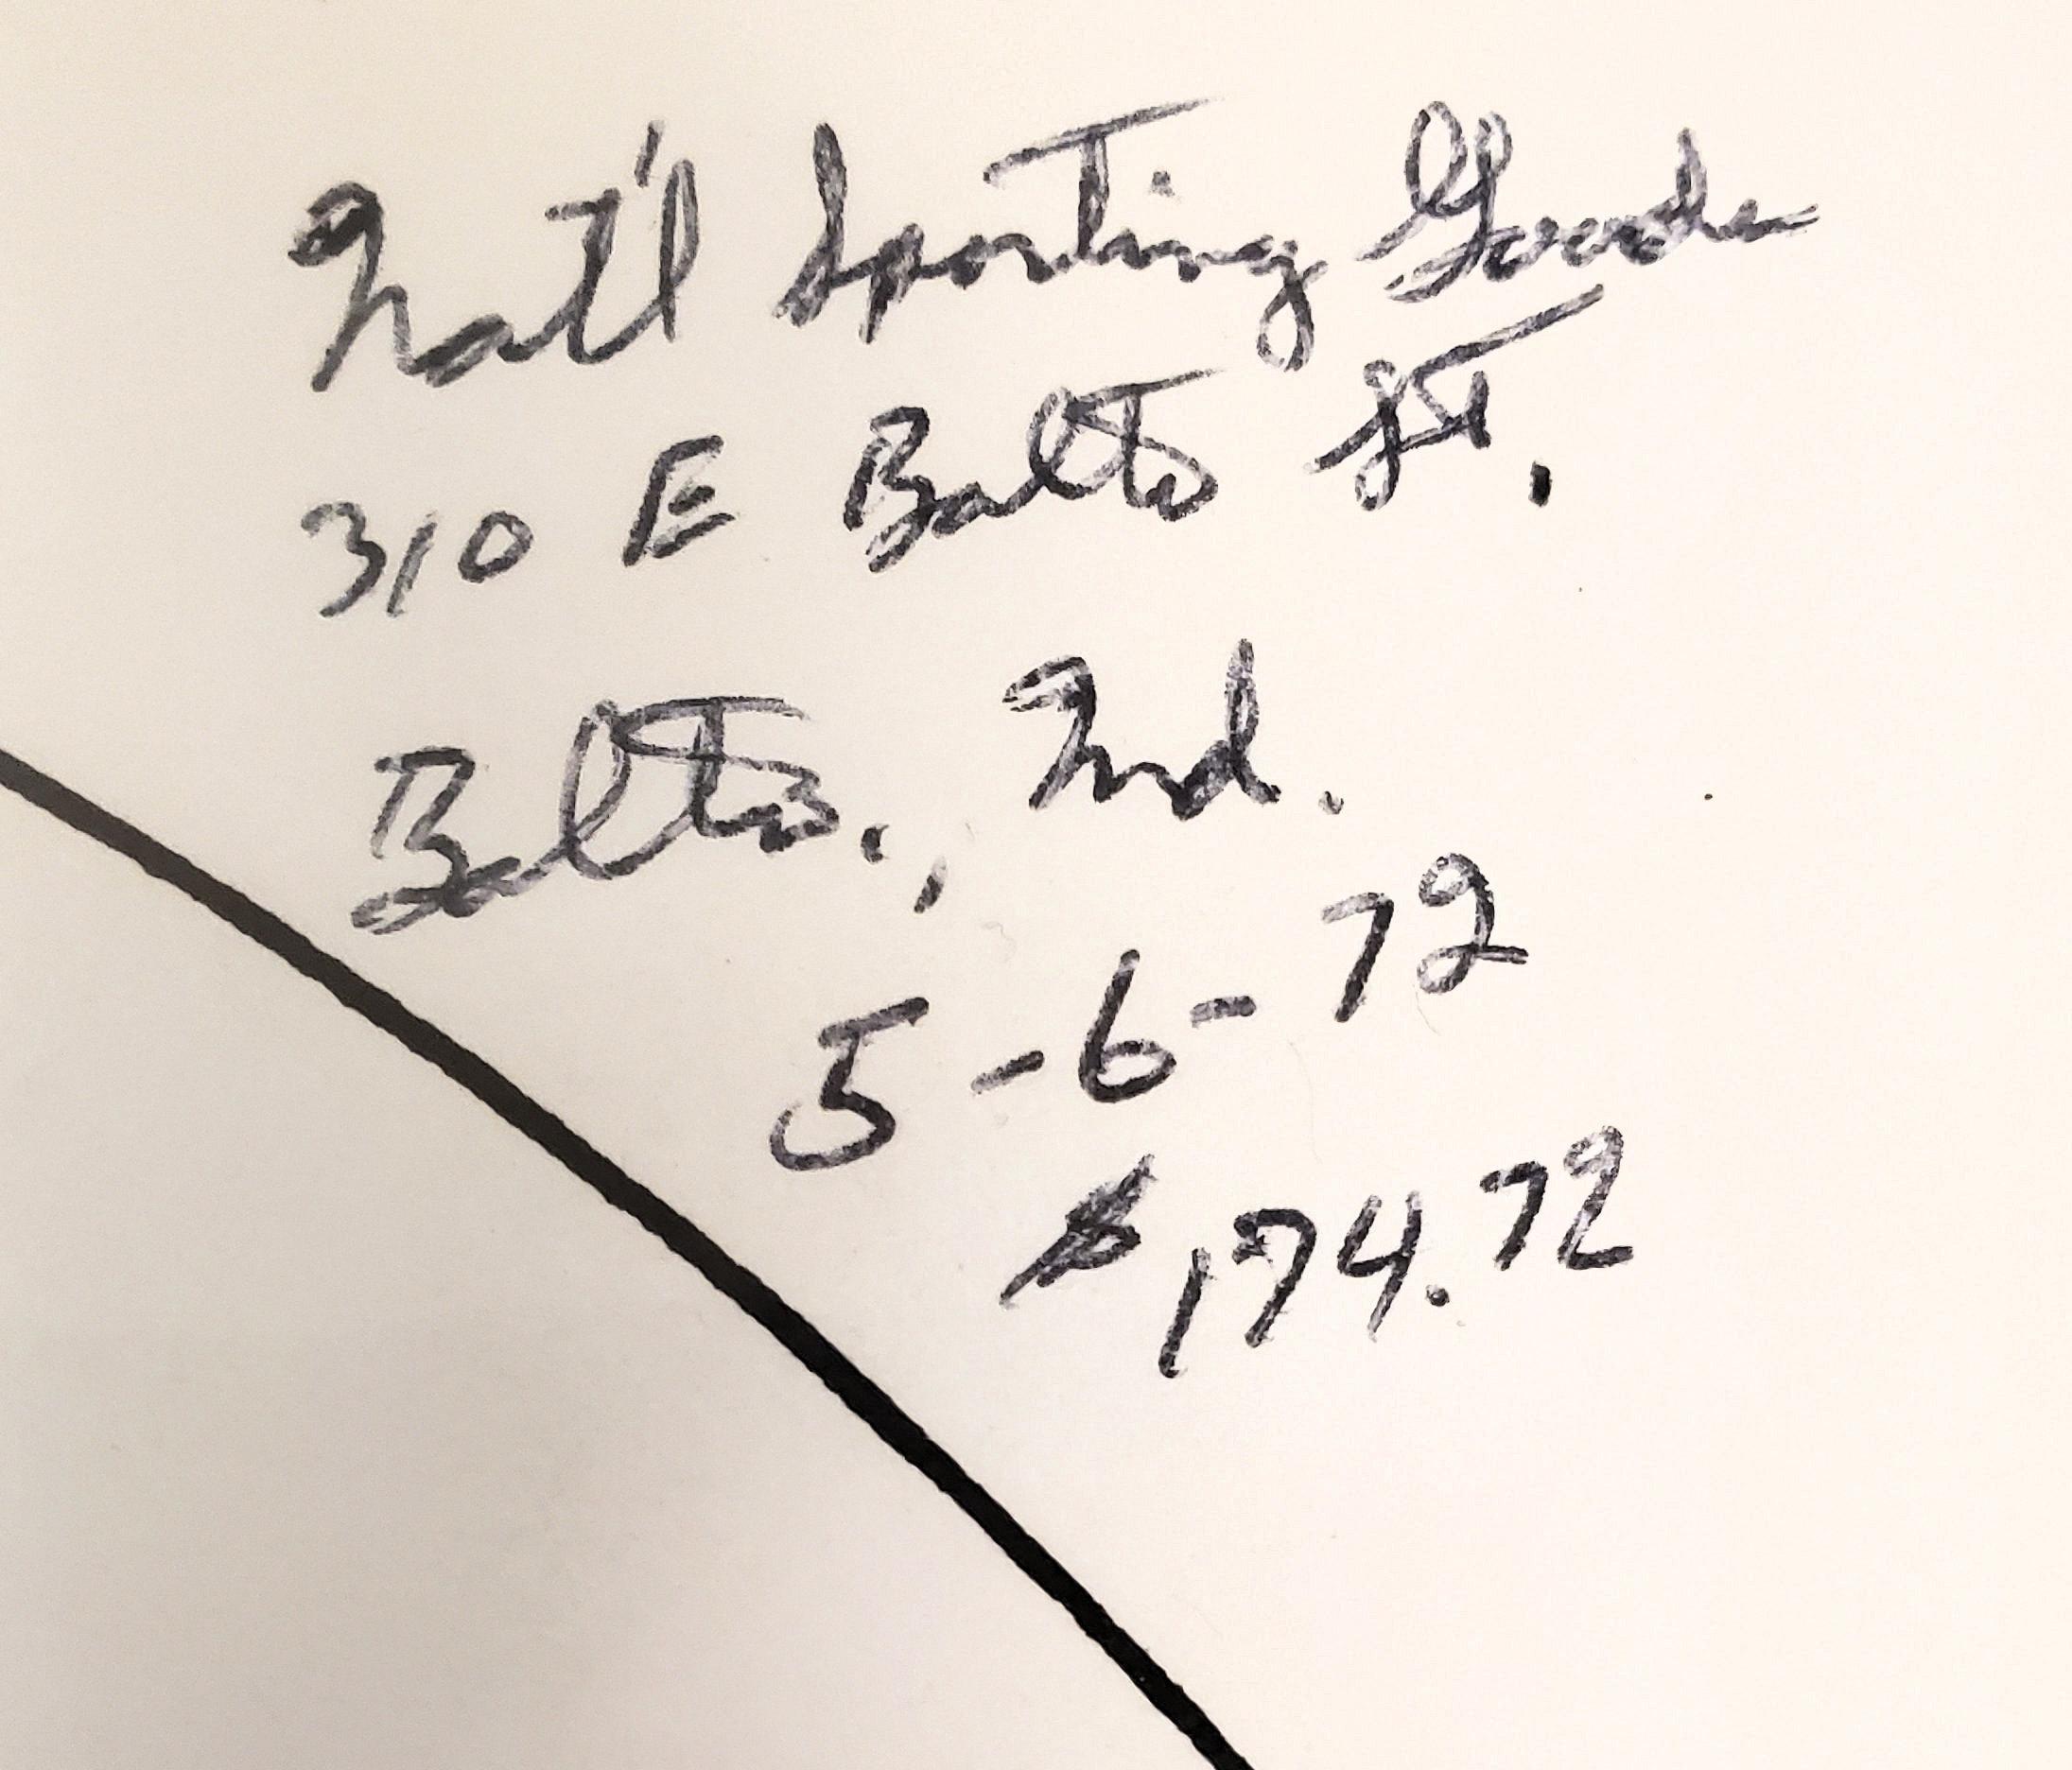 Nat'l Sporting Goods
310 E Balto St.
Balto., Md.
5-6-72
$174.72